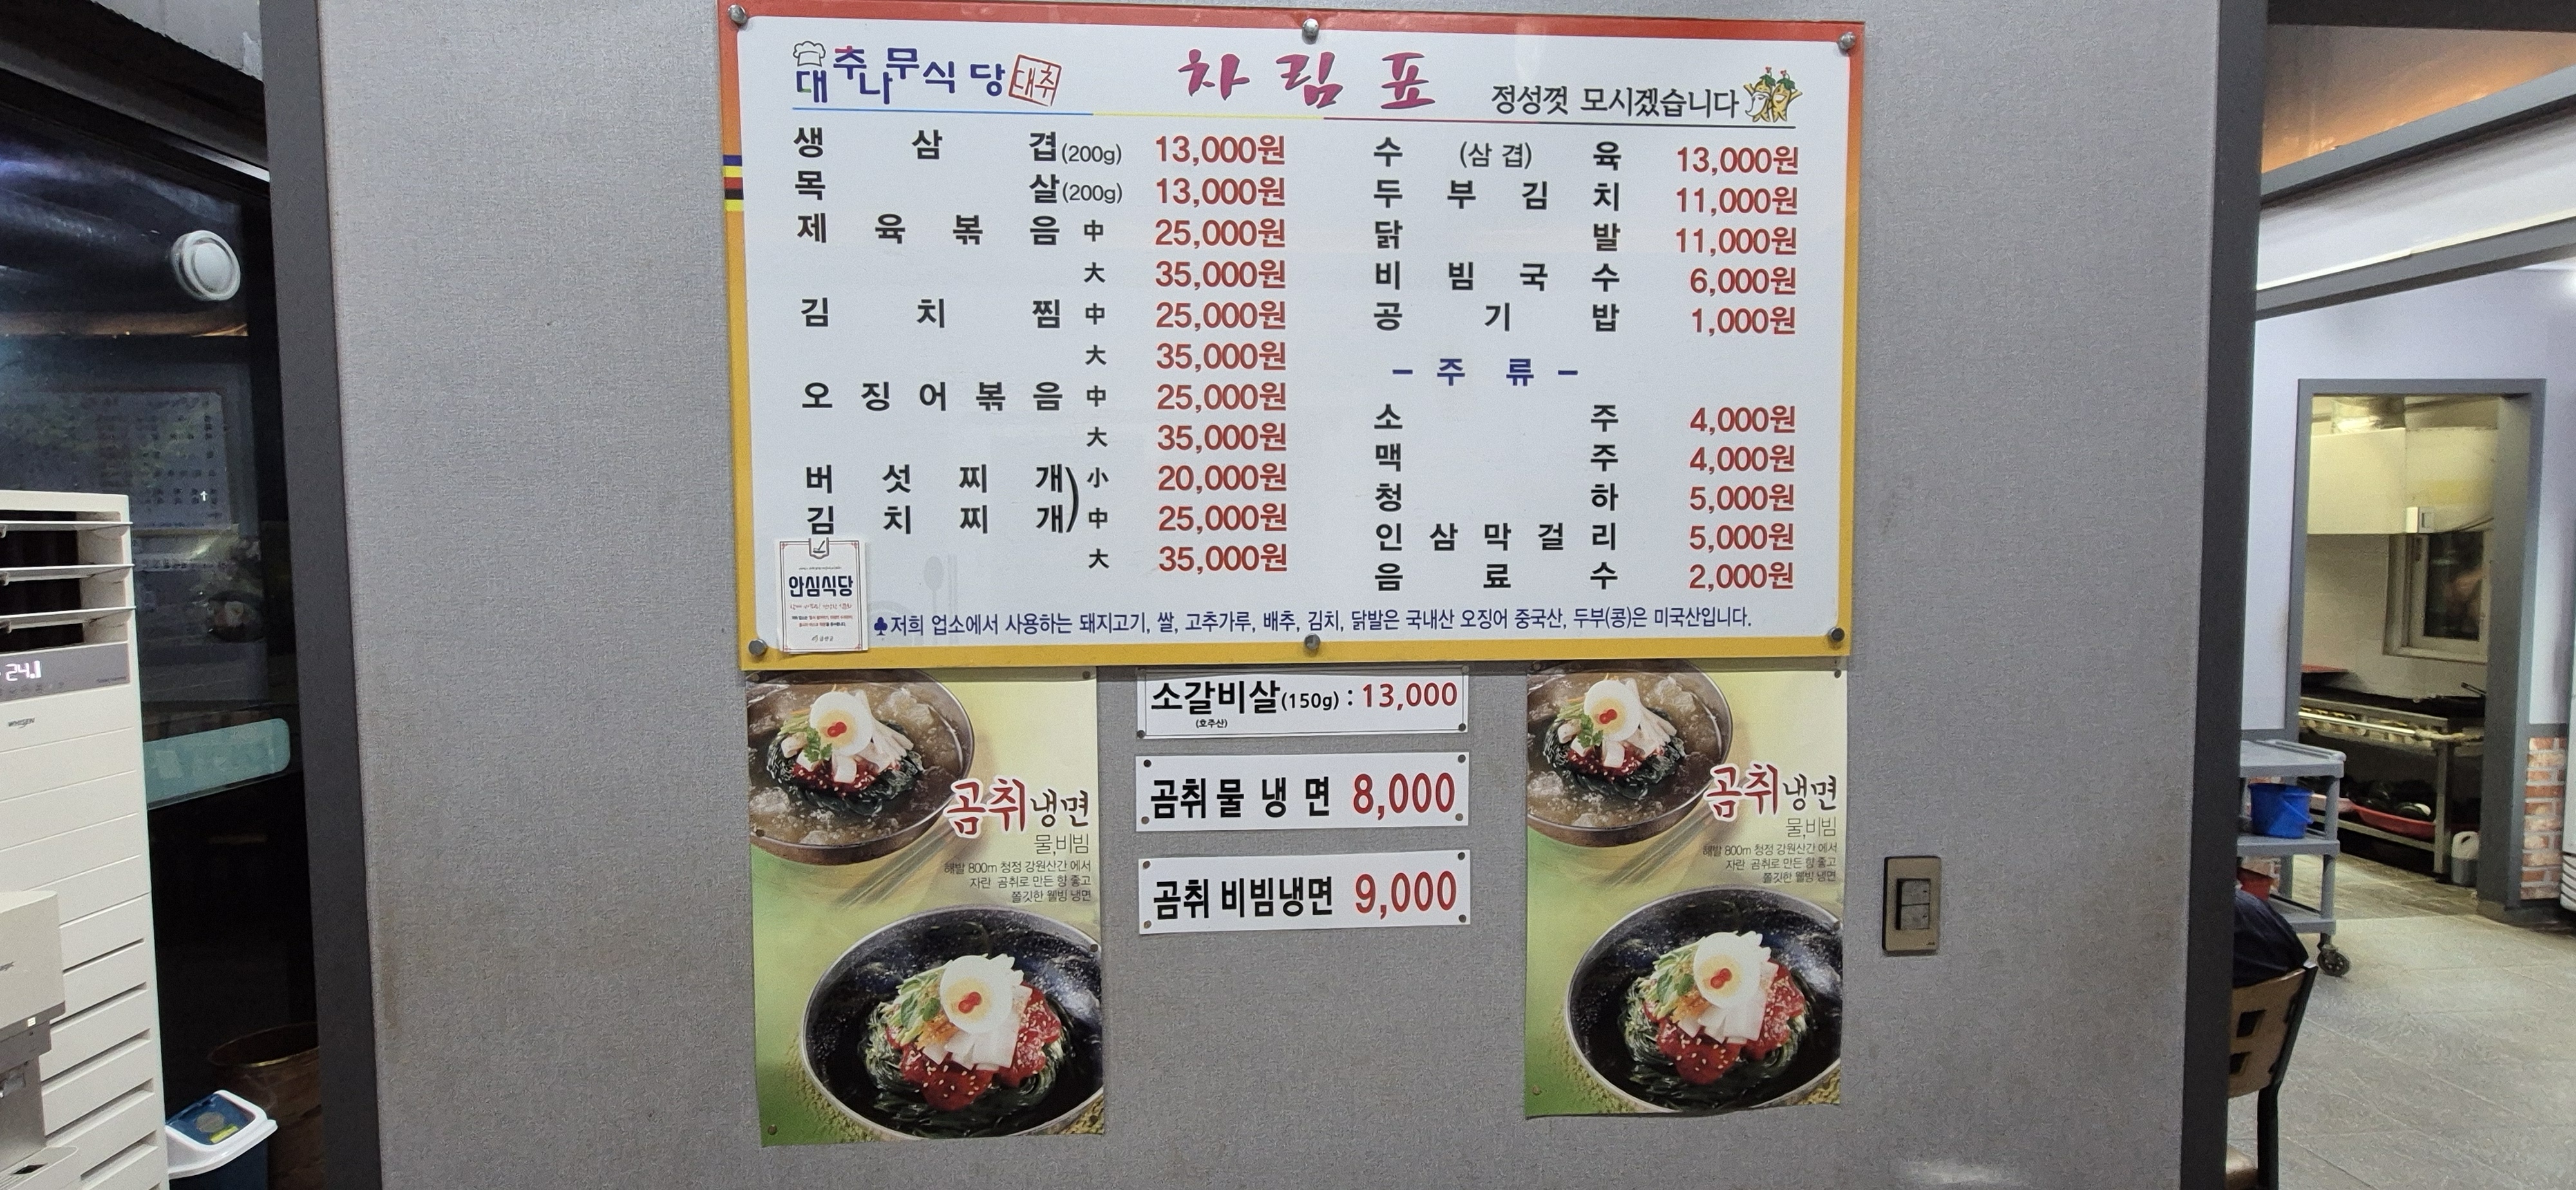 대추나무식당 대추
차림표
정성껏 모시겠습니다
생삼겹(200g) 13,000원
목살(200g) 13,000원
제육볶음 中 25,000원
大 35,000원
김치찜 中 25,000원
大 35,000원
오징어볶음 中 25,000원
大 35,000원
버섯찌개 小 20,000원
김치찌개) 中 25,000원
大 35,000원
수(삼겹)육 13,000원
두부김치 11,000원
닭발 11,000원
비빔국수 6,000원
공기밥 1,000원
- 주류 -
소주 4,000원
맥주 4,000원
청하 5,000원
인삼막걸리 5,000원
음료수 2,000원
안심식당
♣저희 업소에서 사용하는 돼지고기, 쌀, 고추가루, 배추, 김치, 닭발은 국내산 오징어 중국산, 두부(콩)은 미국산입니다.
소갈비살(150g) : 13,000
(호주산)
곰취 물 냉 면 8,000
곰취 비빔냉면 9,000
곰취냉면
물,비빔
해발 800m 청정 강원산간 에서
자란 곰취로 만든 향 좋고
쫄깃한 웰빙 냉면
곰취냉면
물,비빔
해발 800m 청정 강원산간 에서
자란 곰취로 만든 향 좋고
쫄깃한 웰빙 냉면
WHISEN